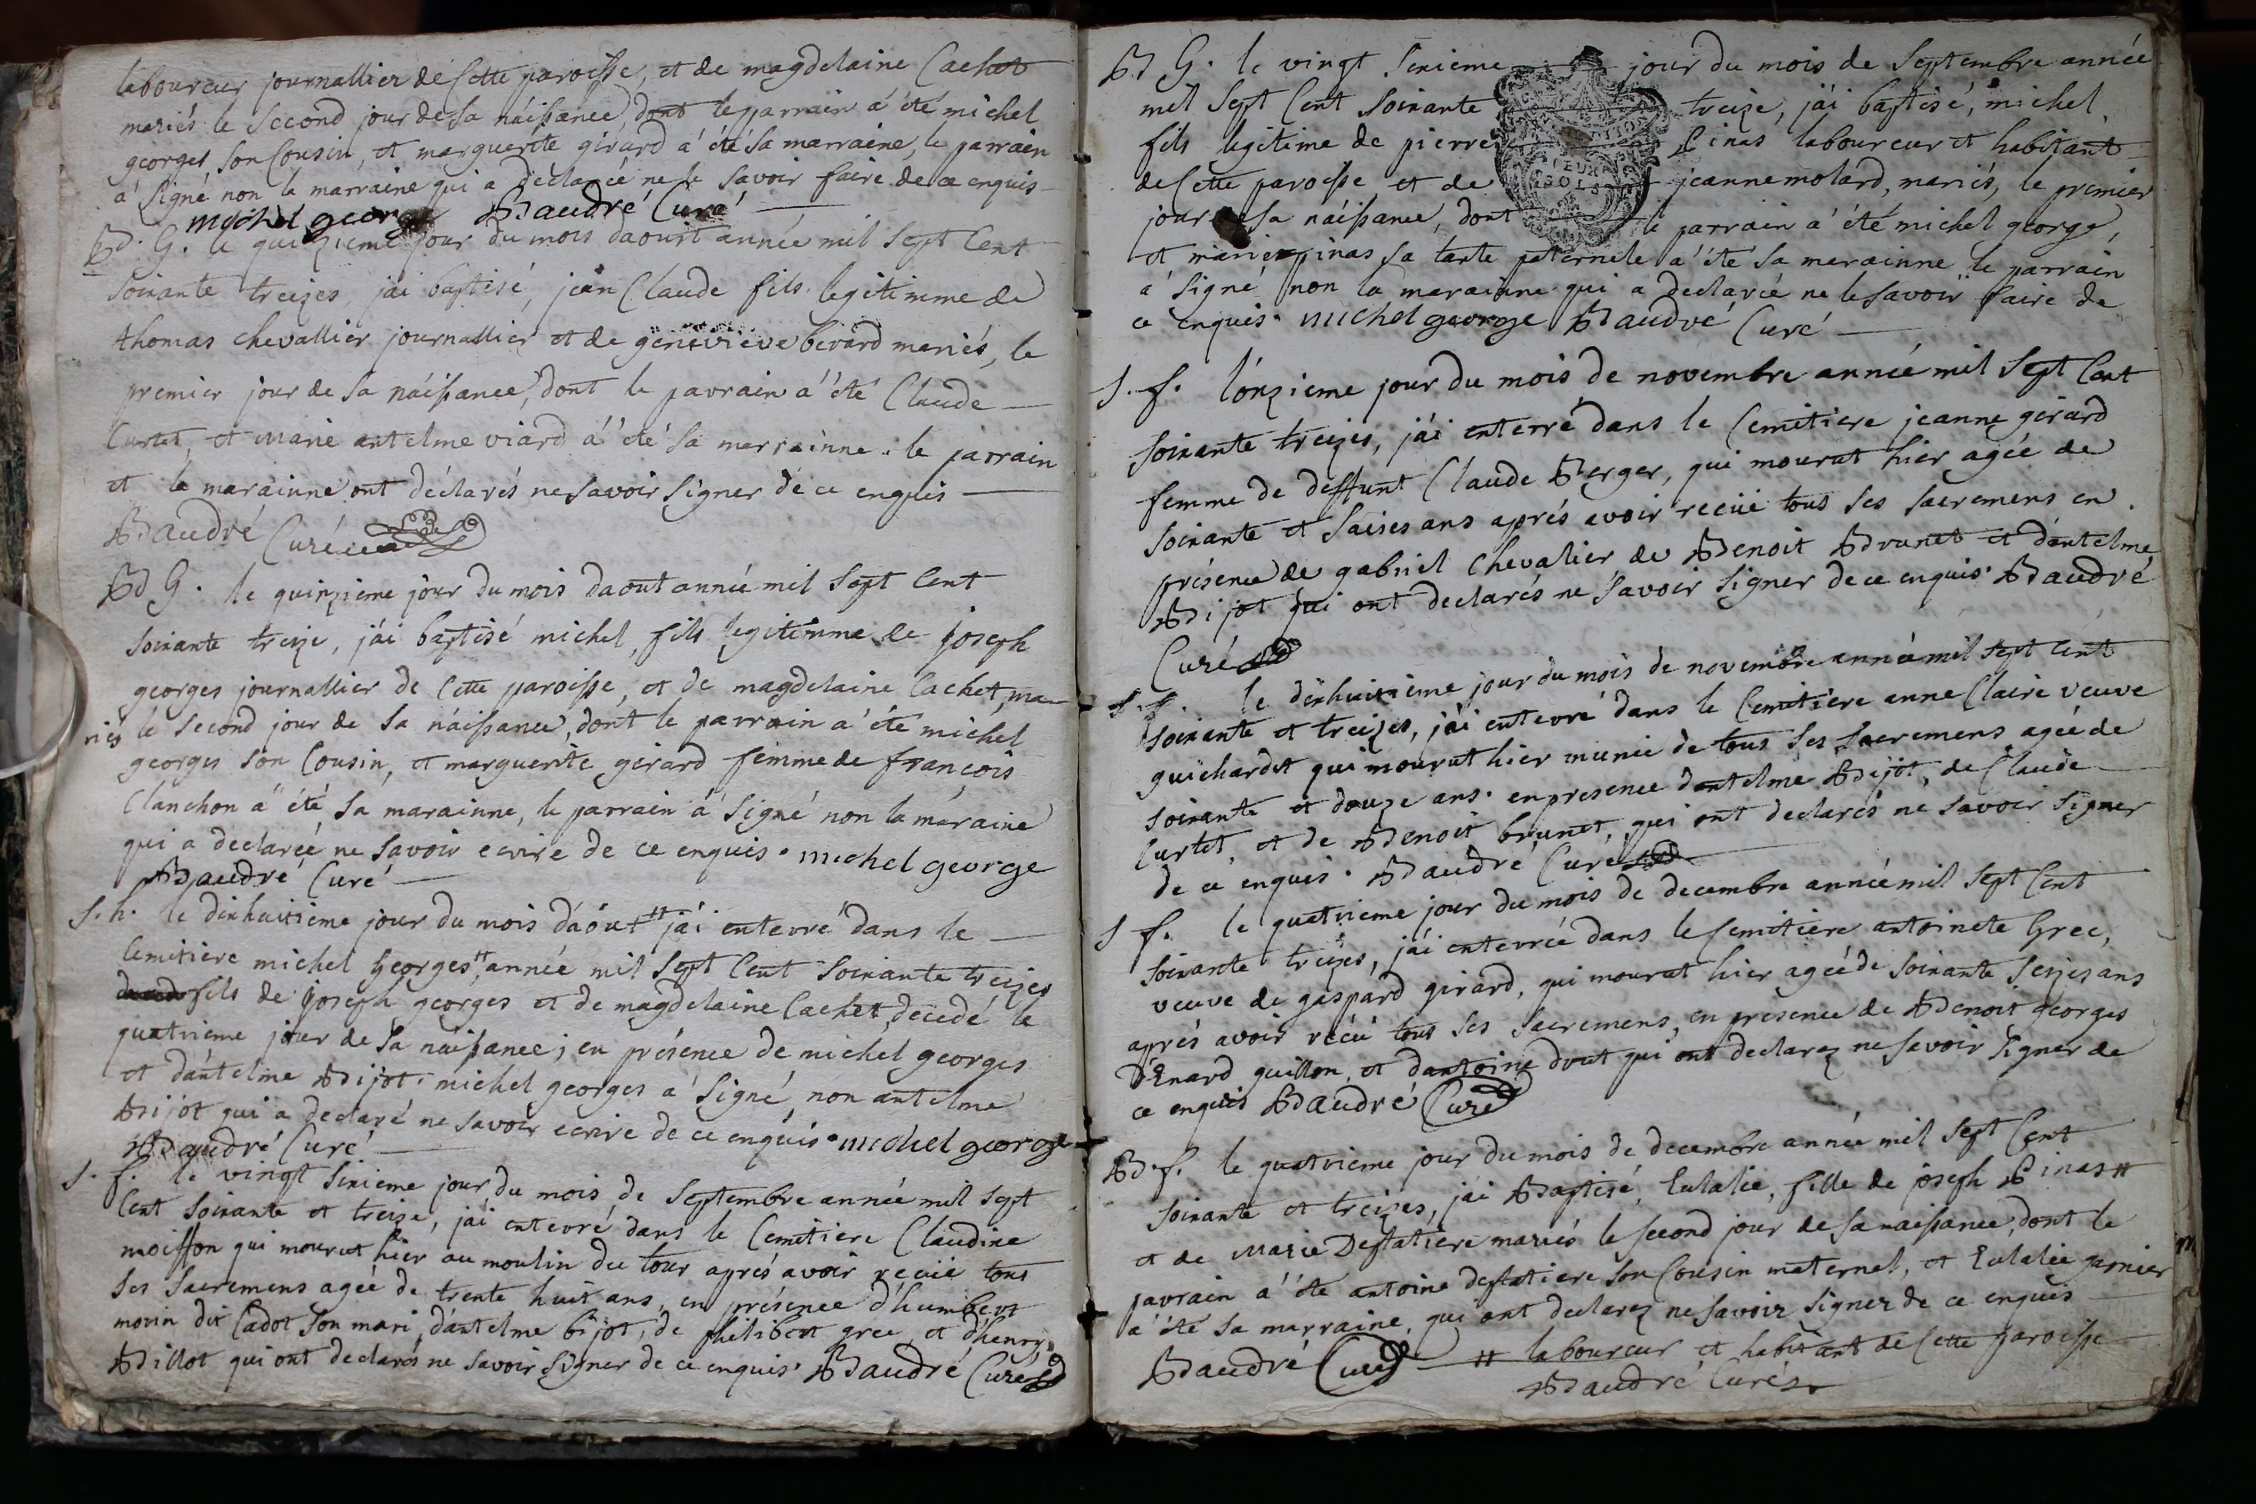 laboureur journallier de Cette paroisse, et de magdelaine Cachet
mariés le second jour de sa náissance, dont le parrain a été michel
georges son Cousin, et marguerite girard a été sa marraine, le parrain
a signé non la marraine qui a declarée ne le savoir faire de ce enquis
michel george Baudré Curé
Bd. G. le quinzieme jour du mois daoust année mil sept Cent
soixante treizes, jai baptisé, jean Claude fils legitimme de
thomas chevallier journallier et de genevieve berard mariés, le
premier jour de sa náissance, dont le parrain a été Claude
Curtet, et Marie antelme viard a été sa marrainne. le parrain
et la marainne ont déclarés ne savoir signer de ce enquis
Baudré Curé
Bd G. le quinzieme jour du mois daout année mil sept Cent
soixante treize, j'ai baptisé michel, fils legitimme de joseph
georges journallier de Cette paroisse, et de magdelaine Cachet, ma-
riés le second jour de sa náissance, dont le parrain a été michel
georges son Cousin, et marguerite girard femme de françois
Clanchon a été sa marainne, le parrain a signé non la máraine
qui a declarée ne savoir ecrire de ce enquis. michel george
Baudré Curé
S. h. le dixhuitieme jour du mois d'aóut # j'ai enterré dans le
Cemitiere michel Georges #, année mil sept Cent soixante treizes
fils de joseph georges et de magdelaine Cachet, décedé le
quatrieme jour de sa náissance; en présence de michel georges
et dantelme Bijot. michel georges a signé non antelme
Bijot qui a declaré ne savoir ecrire de ce enquis. michel george
Baudré Curé
S. f. le vingt sixieme jour du mois de septembre année mil sept
Cent soixante et treize, j'ai enterré dans le Cemitiere Claudine
moisson qui mourut hier au moulin du tour aprés avoir recuie tous
ses sacremens agée de trente huit ans, en présence d'humbert
morin dit Cadot son mari, dantelme bijot, de philibert grec, et d'henry
Billot qui ont declarés ne savoir signer de ce enquis. Baudré Curé
Bd G. le vingt sixieme jour du mois de septembre année
mil sept Cent soixante treize, j'ai baptisé, michel
fils legitime de pierre Pinas laboureur et habitant
de Cette paroisse et de jeanne molard, mariés, le premier
jour sa náissance, dont le parrain a été michel george,
et marie pinas sa tante paternele a été sa marainne, le parrain
a signé non la marainne qui a declarée ne le savoir faire de
ce enquis. michel george Baudré Curé
S. f. l'onzieme jour du mois de novembre année mil sept Cent
soixante treizes, j'ai enterré dans le Cemitiere jeanne girard
femme de deffunt Claude Berger, qui mourut hier agée de
soixante et saises ans aprés avoir recuie tous ses sacremens en
présence de gabriel chevalier de Benoit Brunet et dantelme
Bijot qui ont declarés ne savoir signer de ce enquis. Baudré
Curé
S. f. le dixhuitieme jour du mois de novembre année mil sept Cent
soixante et treizes, j'ai enterré dans le Cemitiere anne Claire veuve
guichardet qui mourut hier munie de tous ses sacremens agée de
soixante et douze ans. en presence dantelme Bijot, de Claude
Curtet, et de Benoit brunet, qui ont declarés ne savoir signer
de ce enquis. Baudré Curé
S f. le quatrieme jour du mois de decembre année mil sept Cent
soixante treizes, j'ai enterrée dans le Cemitiere antoinete Grec,
veuve de gaspard girard, qui mourut hier agée de soixante seizes ans
aprés avoir récu tous ses sacremens, en presence de Benoit georges
D'Enard guillon, et dantoine drut qui ont declarez ne savoir signer de
ce enquis Baudré Curé
Bd. f. le quatrieme jour du mois de decembre année mil sept Cent
soixante et treizes, j'ai Baptisé, Eulalie, fille de joseph Pinas #
et de Marie Destatiere mariés le second jour de sa naissance, dont le
parrain a été antoine destatiere son Cousin maternel, et Eulalie garnier
a été sa marraine, qui ont declarez ne savoir signer de ce enquis
Baudré Curé # laboureur et habitant de Cette paroisse
Baudré Curé